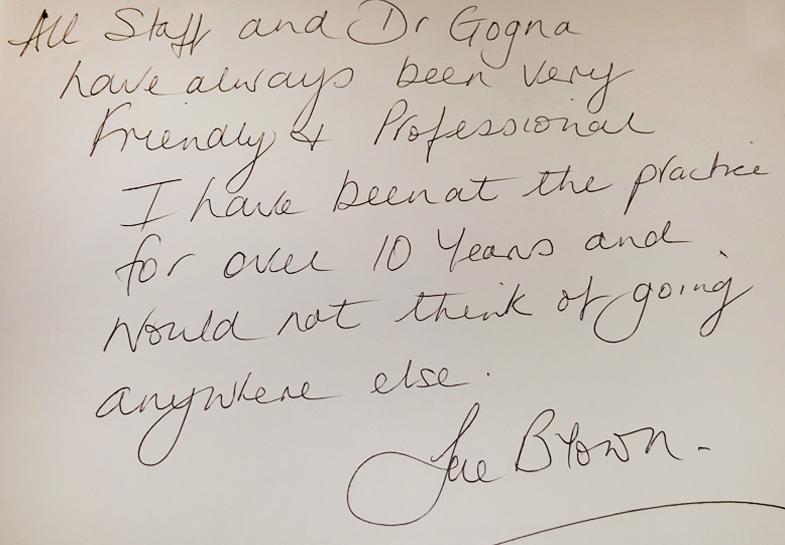 All Staff and Dr Gogna
have always been very
Friendly & Professional
I have been at the practice
for over 10 Years and
Would not think of going
anywhere else.
Brown.